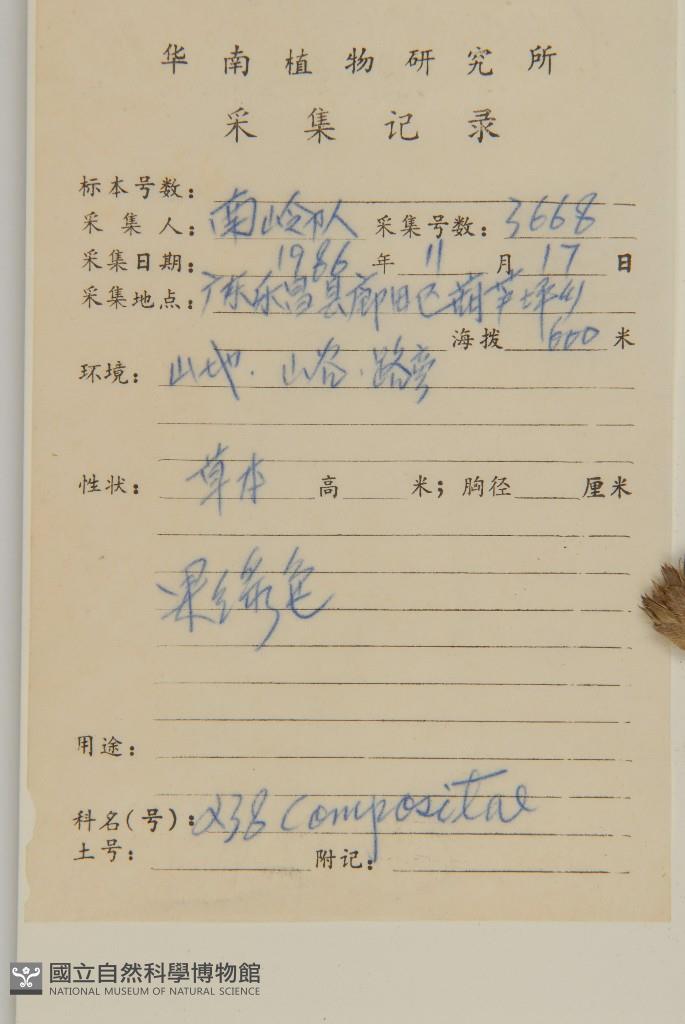 华南植物研究所
采集记录
标本号数：
采集人：南岭队 采集号数：3668
采集日期：1986年11月17日
采集地点：广东乐昌县廊田区葫芦坪
海拨600米
环境：山地．山谷．路旁
性状：草本 高 米；胸径 厘米
果绿色
用途：
科名(号)：238 Compositae
土号： 附记：
國立自然科學博物館
NATIONAL MUSEUM OF NATURAL SCIENCE